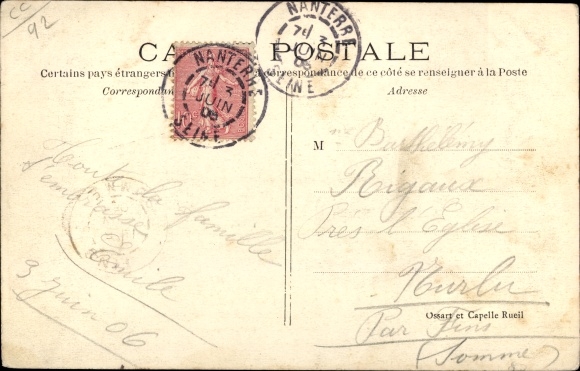 CC
92
CARTE POSTALE
Certains pays étrangers correspondance de ce côté se renseigner à la Poste
Correspondan
Adresse
NANTERRE
3
JUIN
06
SEINE
NANTERRE
3
06
SEINE
Toute la famille
t'embrasse
Emile
3 Juin 06
M Barthélémy
Rigaux
Près l'Eglise
Nurlu
Ossart et Capelle Rueil
Par Fins
(Somme)